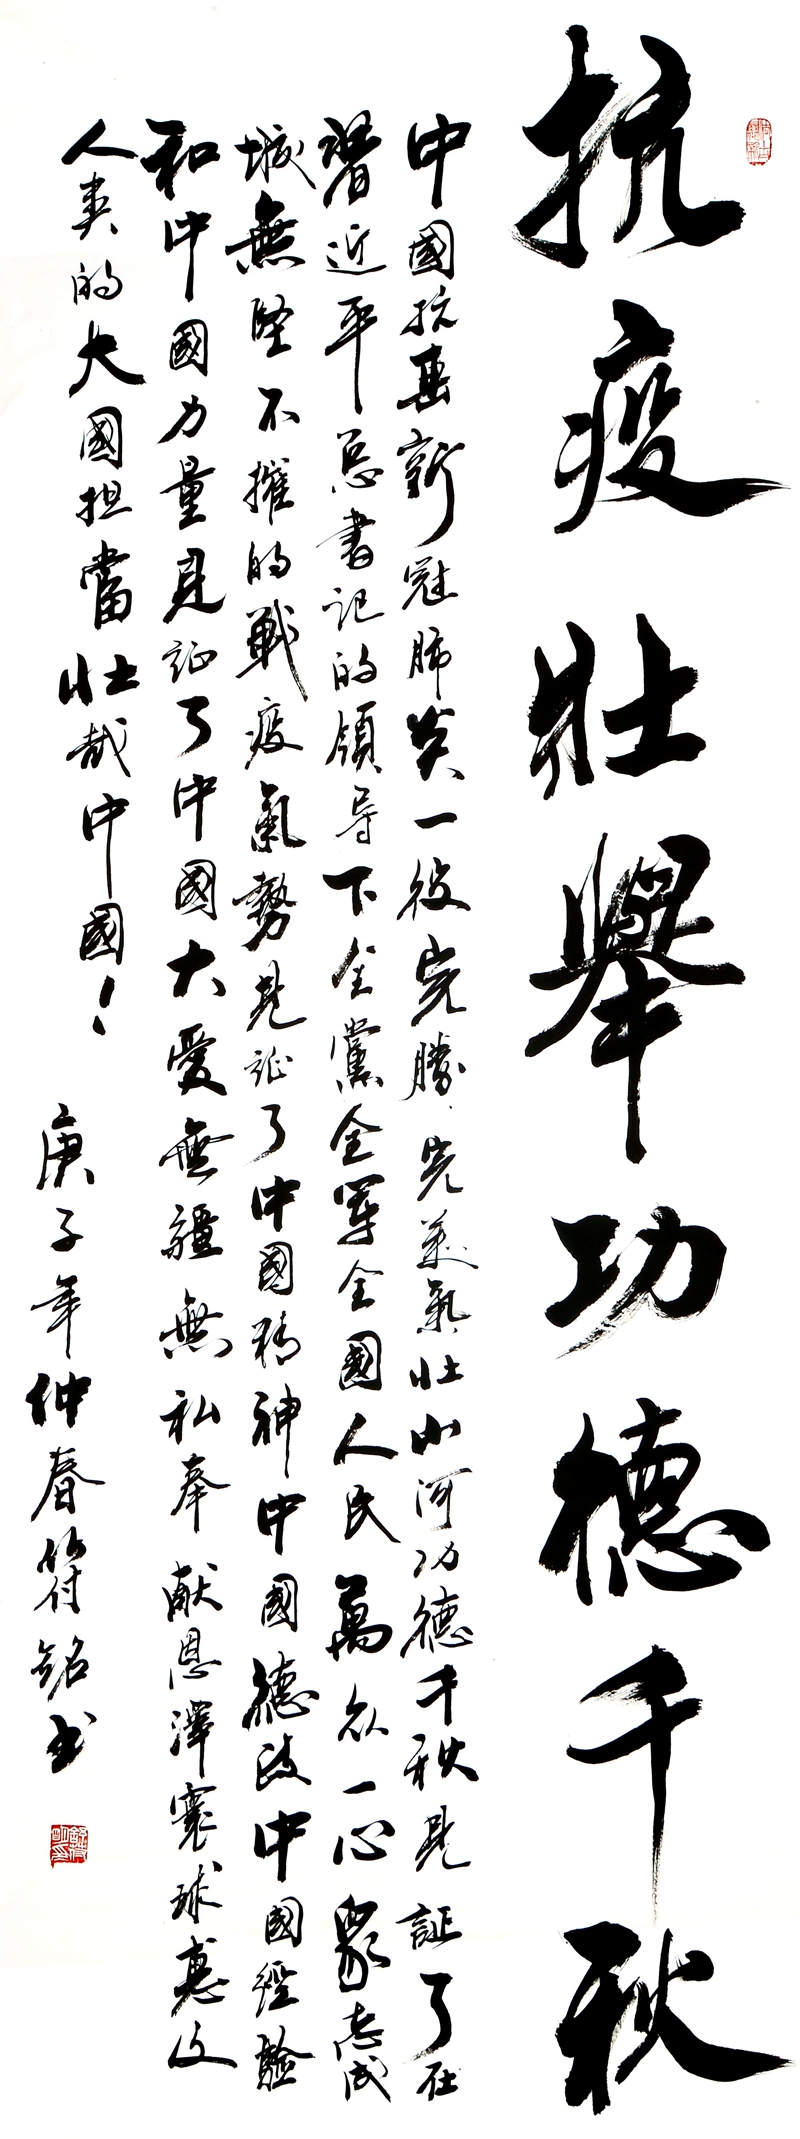 抗疫壯舉功德千秋
中國抗击新冠肺炎一役完勝、完美氣壯山河功德千秋見証了在
習近平总書记的領导下全黨全軍全國人民萬众一心眾志成
城無堅不摧的戰疫氣勢見证了中國精神中國德政中國經驗
和中國力量見证了中國大愛無疆無私奉献恩澤寰球惠及
人类的大國担當壯哉中國！
庚子年仲春符铭书